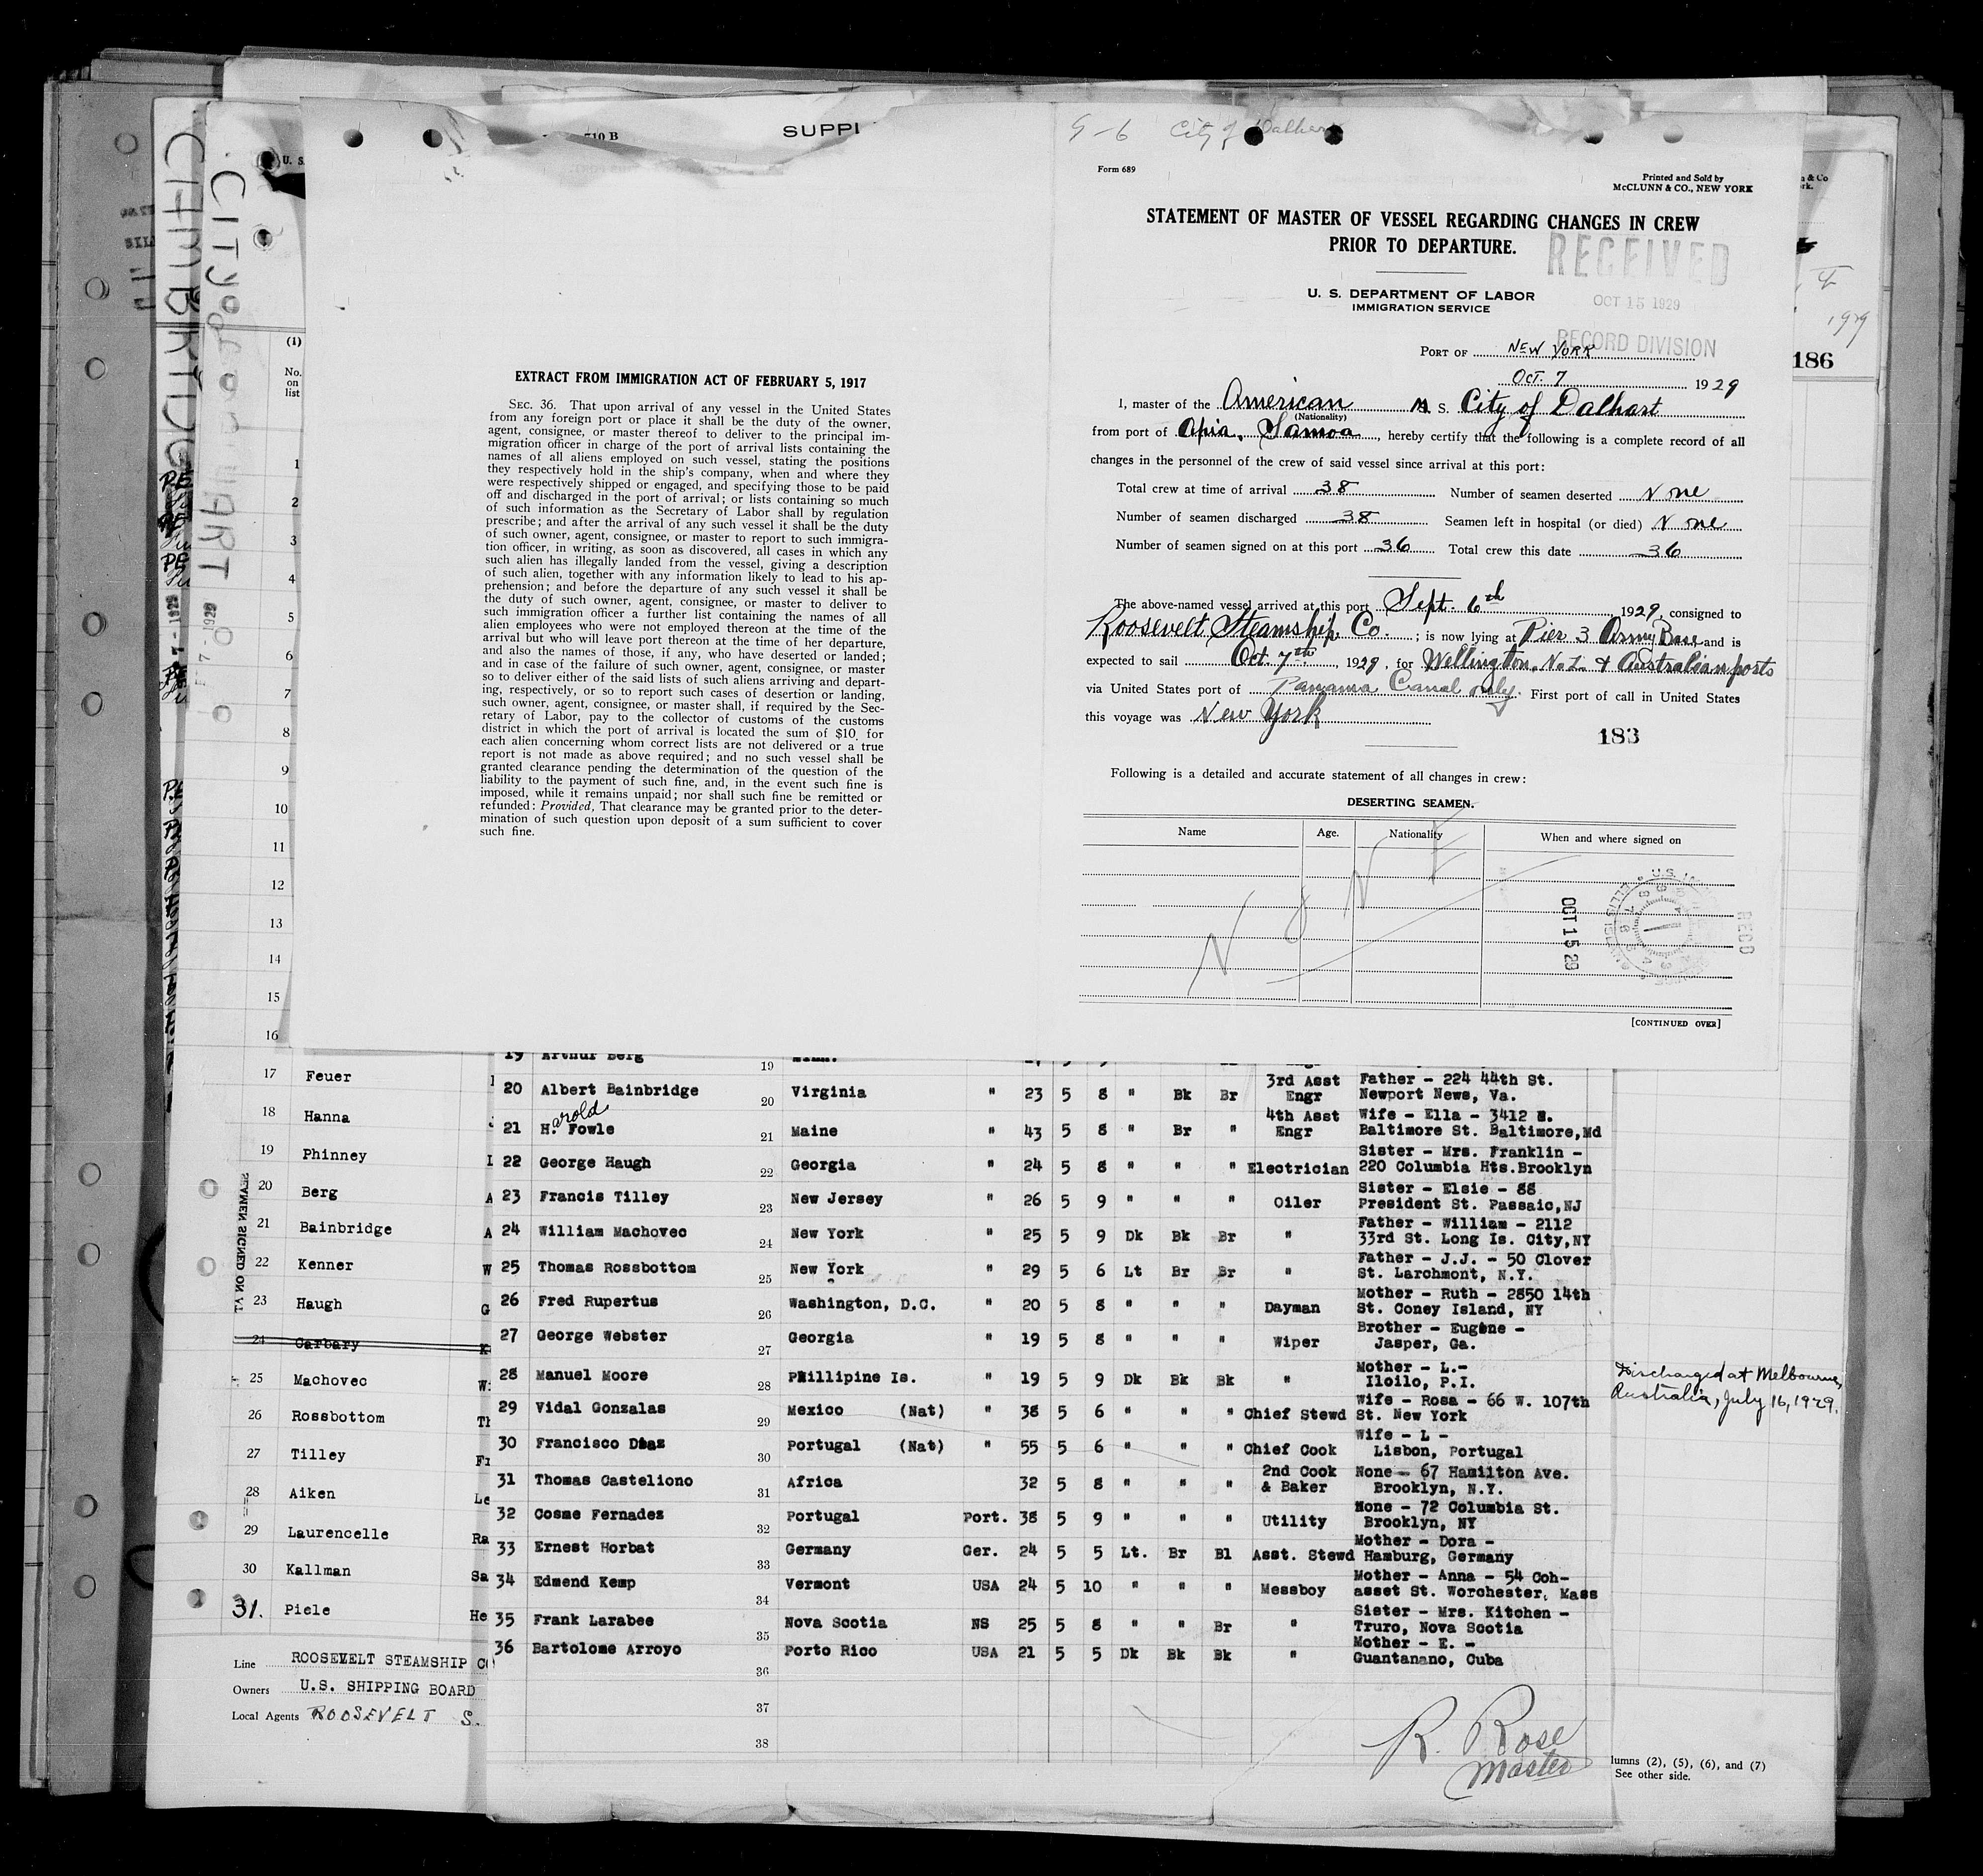 710 B
SUPPL
U. S.
CITY of DALHART
9-6 City of Dalhart
Form 689
Printed and Sold by
McCLUNN & CO., NEW YORK
STATEMENT OF MASTER OF VESSEL REGARDING CHANGES IN CREW
PRIOR TO DEPARTURE.
RECEIVED
OCT 15 1929
RECORD DIVISION
U. S. DEPARTMENT OF LABOR
IMMIGRATION SERVICE
PORT OF New York
Oct. 7 1929
I, master of the American M. S. City of Dalhart
(Nationality)
from port of Apia, Samoa, hereby certify that the following is a complete record of all
changes in the personnel of the crew of said vessel since arrival at this port:
Total crew at time of arrival 38 Number of seamen deserted None
Number of seamen discharged 38 Seamen left in hospital (or died) None
Number of seamen signed on at this port 36 Total crew this date 36
The above-named vessel arrived at this port Sept. 6th, 1929, consigned to
Roosevelt Steamship Co.; is now lying at Pier 3 Army Base and is
expected to sail Oct. 7th, 1929, for Wellington, N.Z. & Australian ports
via United States port of Panama Canal only. First port of call in United States
this voyage was New York
183
Following is a detailed and accurate statement of all changes in crew:
DESERTING SEAMEN.
Name Age. Nationality When and where signed on
NONE
OCT 15 29
RECD
[CONTINUED OVER]
EXTRACT FROM IMMIGRATION ACT OF FEBRUARY 5, 1917
SEC. 36. That upon arrival of any vessel in the United States
from any foreign port or place it shall be the duty of the owner,
agent, consignee, or master thereof to deliver to the principal im-
migration officer in charge of the port of arrival lists containing the
names of all aliens employed on such vessel, stating the positions
they respectively hold in the ship's company, when and where they
were respectively shipped or engaged, and specifying those to be paid
off and discharged in the port of arrival; or lists containing so much
of such information as the Secretary of Labor shall by regulation
prescribe; and after the arrival of any such vessel it shall be the duty
of such owner, agent, consignee, or master to report to such immigra-
tion officer, in writing, as soon as discovered, all cases in which any
such alien has illegally landed from the vessel, giving a description
of such alien, together with any information likely to lead to his ap-
prehension; and before the departure of any such vessel it shall be
the duty of such owner, agent, consignee, or master to deliver to
such immigration officer a further list containing the names of all
alien employees who were not employed thereon at the time of the
arrival but who will leave port thereon at the time of her departure,
and also the names of those, if any, who have deserted or landed;
and in case of the failure of such owner, agent, consignee, or master
so to deliver either of the said lists of such aliens arriving and depart-
ing, respectively, or so to report such cases of desertion or landing,
such owner, agent, consignee, or master shall, if required by the Sec-
retary of Labor, pay to the collector of customs of the customs
district in which the port of arrival is located the sum of $10 for
each alien concerning whom correct lists are not delivered or a true
report is not made as above required; and no such vessel shall be
granted clearance pending the determination of the question of the
liability to the payment of such fine, and, in the event such fine is
imposed, while it remains unpaid; nor shall such fine be remitted or
refunded: Provided, That clearance may be granted prior to the deter-
mination of such question upon deposit of a sum sufficient to cover
such fine.
186
1929
(1)
No.
on
list
1
2
3
4
5
6
7
8
9
10
11
12
13
14
15
16
17 Feuer
18 Hanna
19 Phinney
20 Berg
21 Bainbridge
22 Kenner
23 Haugh
24 Carbary
25 Machovec
26 Rossbottom
27 Tilley
28 Aiken
29 Laurencelle
30 Kallman
31. Piele
SEAMEN SIGNED ON AT
Line ROOSEVELT STEAMSHIP CO
Owners U.S. SHIPPING BOARD
Local Agents ROOSEVELT S.
19 Arthur Berg 19 Minn.
20 Albert Bainbridge 20 Virginia " 23 5 8 " Bk Br 3rd Asst Engr Father - 224 44th St. Newport News, Va.
21 Harold Fowle 21 Maine " 43 5 8 " Br " 4th Asst Engr Wife - Ella - 3412 E. Baltimore St. Baltimore, Md
22 George Haugh 22 Georgia " 24 5 8 " " " Electrician Sister - Mrs. Franklin - 220 Columbia Hts. Brooklyn
23 Francis Tilley 23 New Jersey " 26 5 9 " " " Oiler Sister - Elsie - 88 President St. Passaic, NJ
24 William Machovec 24 New York " 25 5 9 Dk Bk Br " Father - William - 2112 33rd St. Long Is. City, NY
25 Thomas Rossbottom 25 New York " 29 5 6 Lt Br Br " Father - J.J. - 50 Clover St. Larchmont, N.Y.
26 Fred Rupertus 26 Washington, D.C. " 20 5 8 " " " Dayman Mother - Ruth - 2850 14th St. Coney Island, NY
27 George Webster 27 Georgia " 19 5 8 " " " Wiper Brother - Eugene - Jasper, Ga.
28 Manuel Moore 28 Phillipine Is. " 19 5 9 Dk Bk Bk " Mother - L.- Iloilo, P.I.
29 Vidal Gonzalas 29 Mexico (Nat) " 38 5 6 " " " Chief Stewd Wife - Rosa - 66 W. 107th St. New York
30 Francisco Diaz 30 Portugal (Nat) " 55 5 6 " " " Chief Cook Wife - L - Lisbon, Portugal
31 Thomas Casteliono 31 Africa 32 5 8 " " " 2nd Cook & Baker None - 67 Hamilton Ave. Brooklyn, N.Y.
32 Cosme Fernadez 32 Portugal Port. 38 5 9 " " " Utility None - 72 Columbia St. Brooklyn, NY
33 Ernest Horbat 33 Germany Ger. 24 5 5 Lt. Br Bl Asst. Stewd Mother - Dora - Hamburg, Germany
34 Edmend Kemp 34 Vermont USA 24 5 10 " " " Messboy Mother - Anna - 54 Coh- asset St. Worchester, Mass
35 Frank Larabee 35 Nova Scotia NS 25 5 8 " " Br " Sister - Mrs. Kitchen - Truro, Nova Scotia
36 Bartolome Arroyo 36 Porto Rico USA 21 5 5 Dk Bk Bk " Mother - E. - Guantanano, Cuba
37
38
R. Rose
Master
Discharged at Melbourne,
Australia, July 16, 1929.
lumns (2), (5), (6), and (7)
See other side.